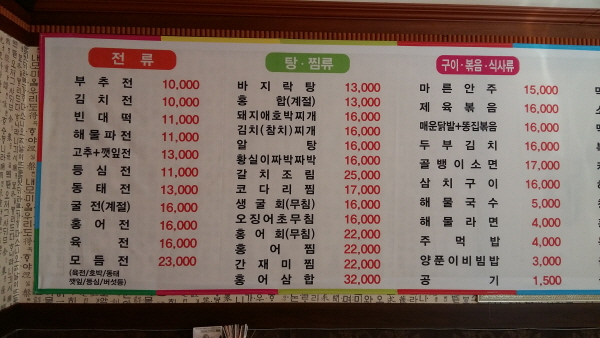 전 류
부 추 전 10,000
김 치 전 10,000
빈 대 떡 11,000
해 물 파 전 11,000
고추+깻잎전 13,000
등 심 전 11,000
동 태 전 13,000
굴 전(계절) 16,000
홍 어 전 16,000
육 전 16,000
모 듬 전 23,000
(육전/호박/동태
깻잎/등심/버섯등)
탕 · 찜류
바 지 락 탕 13,000
홍 합(계절) 13,000
돼지애호박찌개 16,000
김치(참치)찌개 16,000
알 탕 16,000
황실이짜박짜박 16,000
갈 치 조 림 25,000
코 다 리 찜 17,000
생 굴 회(무침) 16,000
오징어초무침 16,000
홍 어 회(무침) 22,000
홍 어 찜 22,000
간 재 미 찜 22,000
홍 어 삼 합 32,000
구이 · 볶음 · 식사류
마 른 안 주 15,000
제 육 볶 음 16,000
매운닭발+똥집볶음 16,000
두 부 김 치 16,000
골 뱅 이 소 면 17,000
삼 치 구 이 16,000
해 물 국 수 5,000
해 물 라 면 4,000
주 먹 밥 4,000
양푼이비빔밥 3,000
공 기 1,500